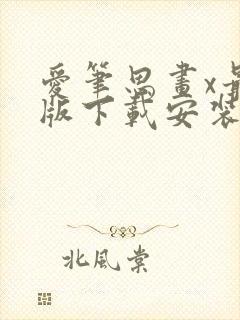 愛筆思畫x最
版下載安裝
北風棠